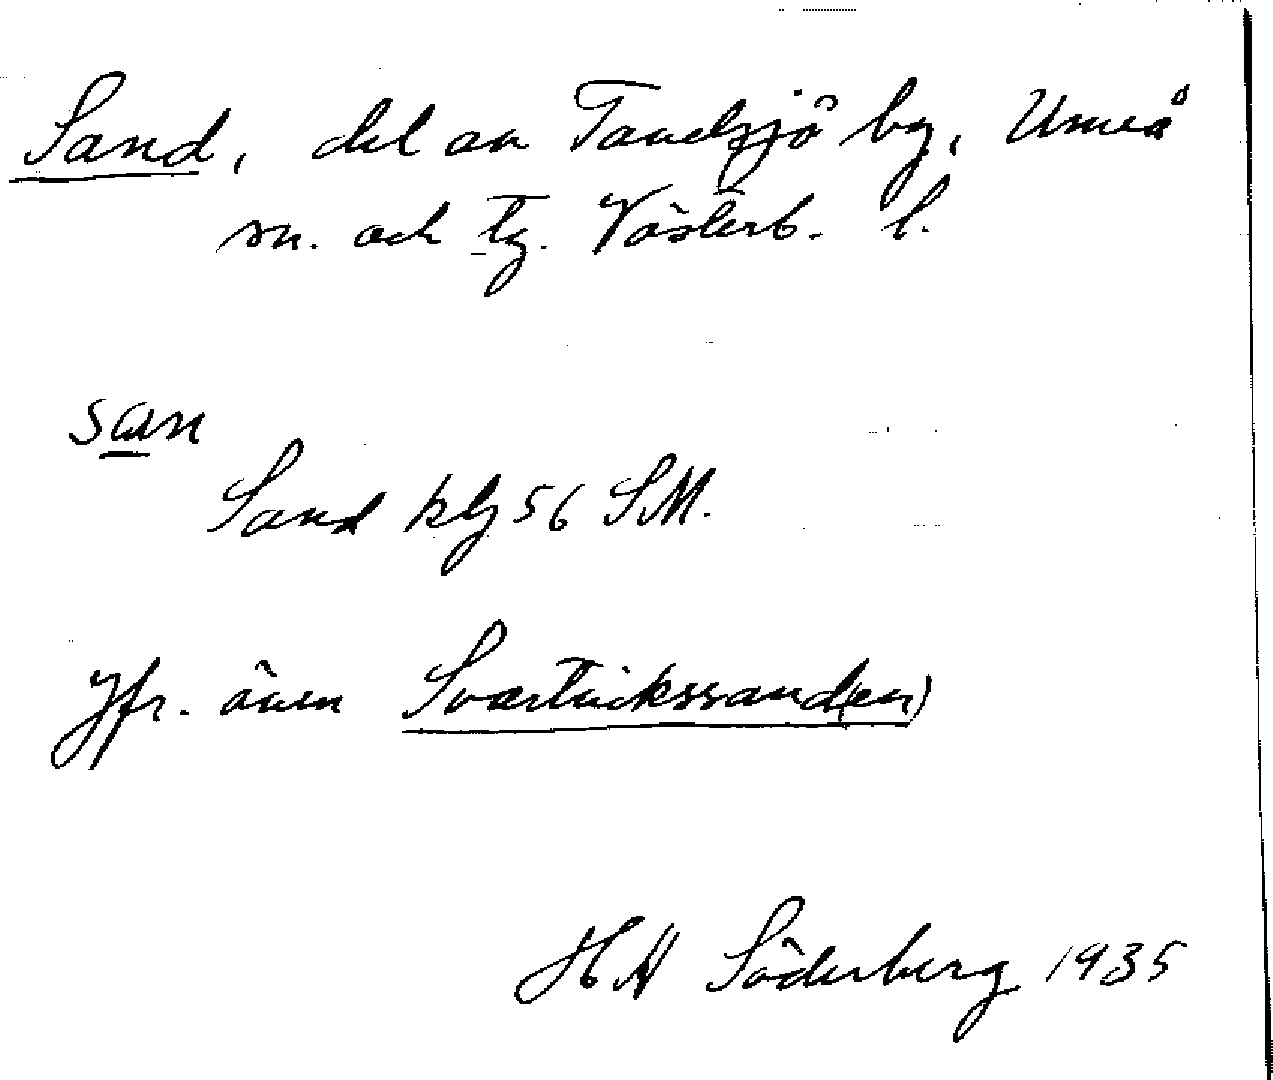 Sand, del av Tavelsjö by, Umeå
sn. och tg. Västerb. l.
san
Sand kbl 56 SM.
Jfr. även Svartvikssand(en)
H H Söderberg 1935